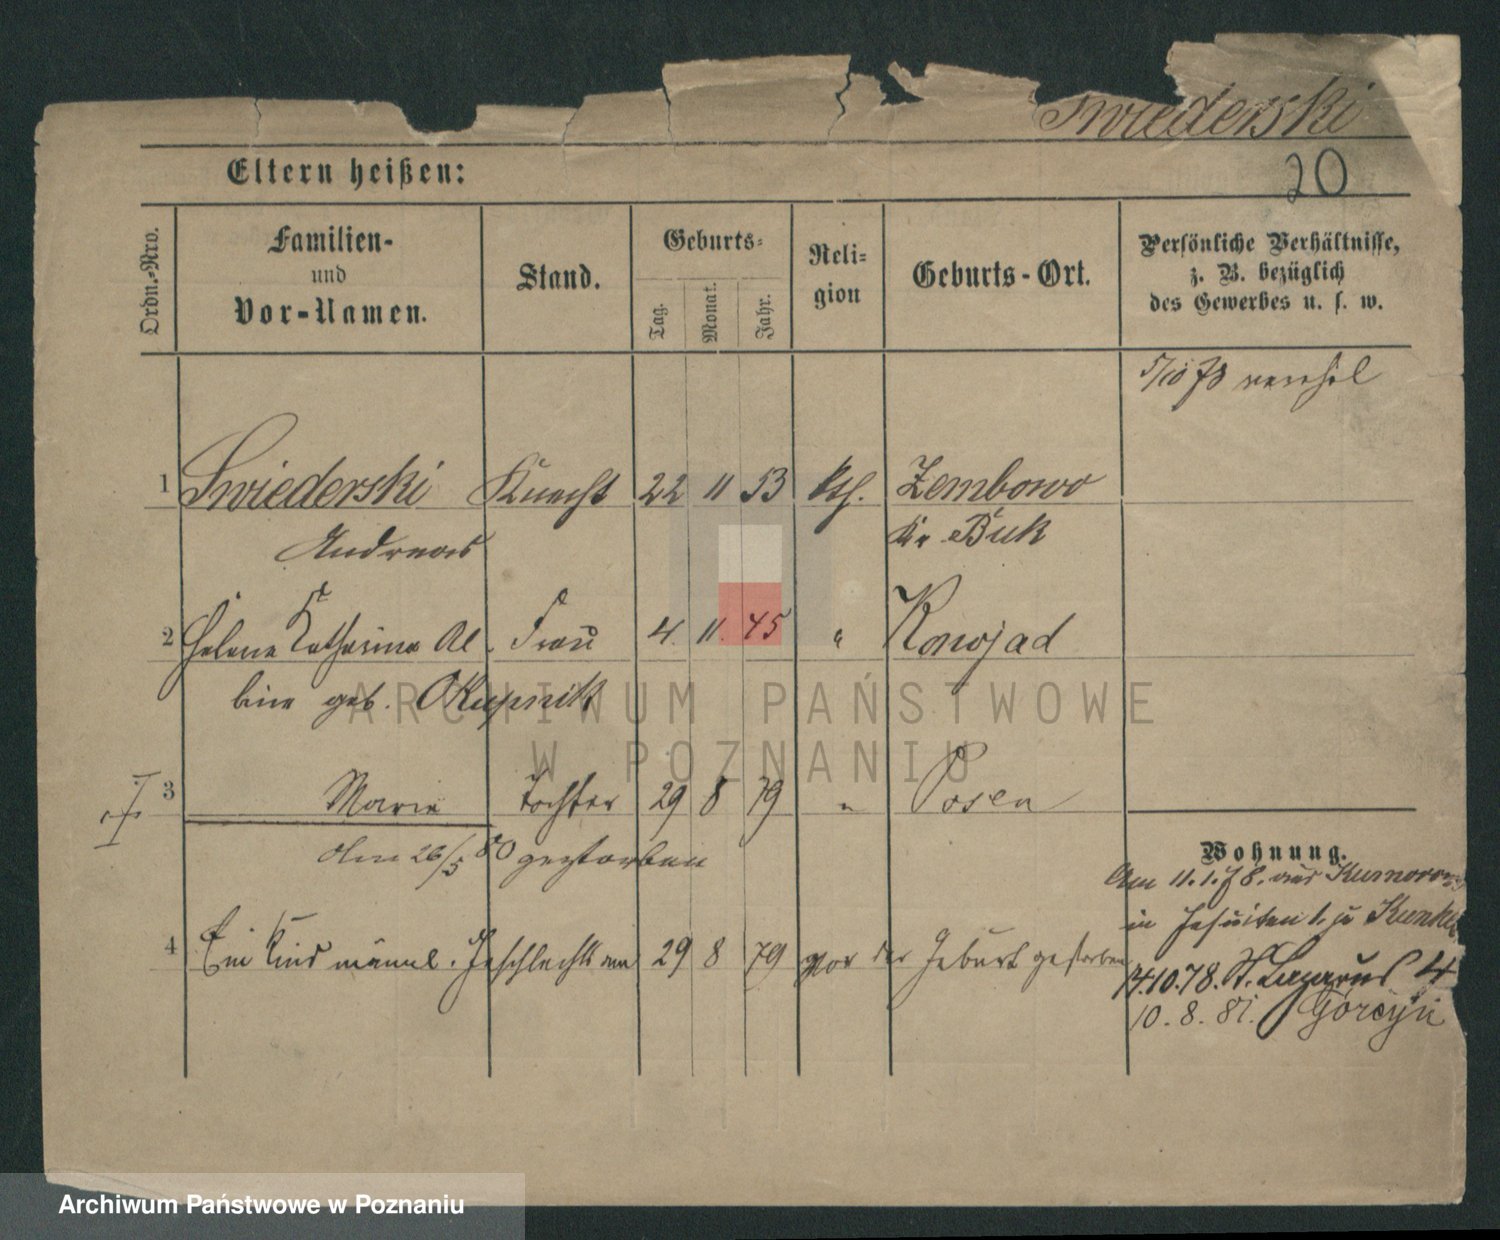 Swiederski
20
Eltern heißen:
Ordn.-Nro.
Familien-
und
Vor-Namen.
Stand.
Geburts-
Tag.
Monat.
Jahr.
Reli-
gion
Geburts-Ort.
Persönliche Verhältnisse,
z. B. bezüglich
des Gewerbes u. s. w.
5/10 78
1 Swiederski Knecht 22 11 53 kth. Zembowo
Andreas Kr. Buk
2 Helene Katharina Al- Frau 4. 11. 45 " Konojad
bine geb. Okupnik
ARCHIWUM PAŃSTWOWE
W POZNANIU
3 Marie Tochter 29 8 79 " Posen
den 26/5 80 gestorben
Wohnung.
Am 11.1.78. aus
in Jesuiten
4 Ein Kind männl. Geschlechts am 29 8 79 vor der Geburt gestorben
14.10.78. St. Lazarus 4
10.8.81. Górczyn
Archiwum Państwowe w Poznaniu